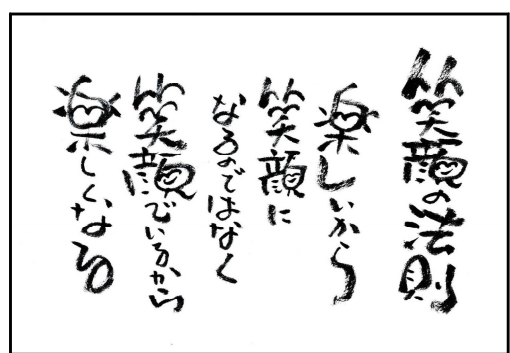 笑顔の法則
楽しいから
笑顔に
なるのではなく
笑顔でいるから
楽しくなる